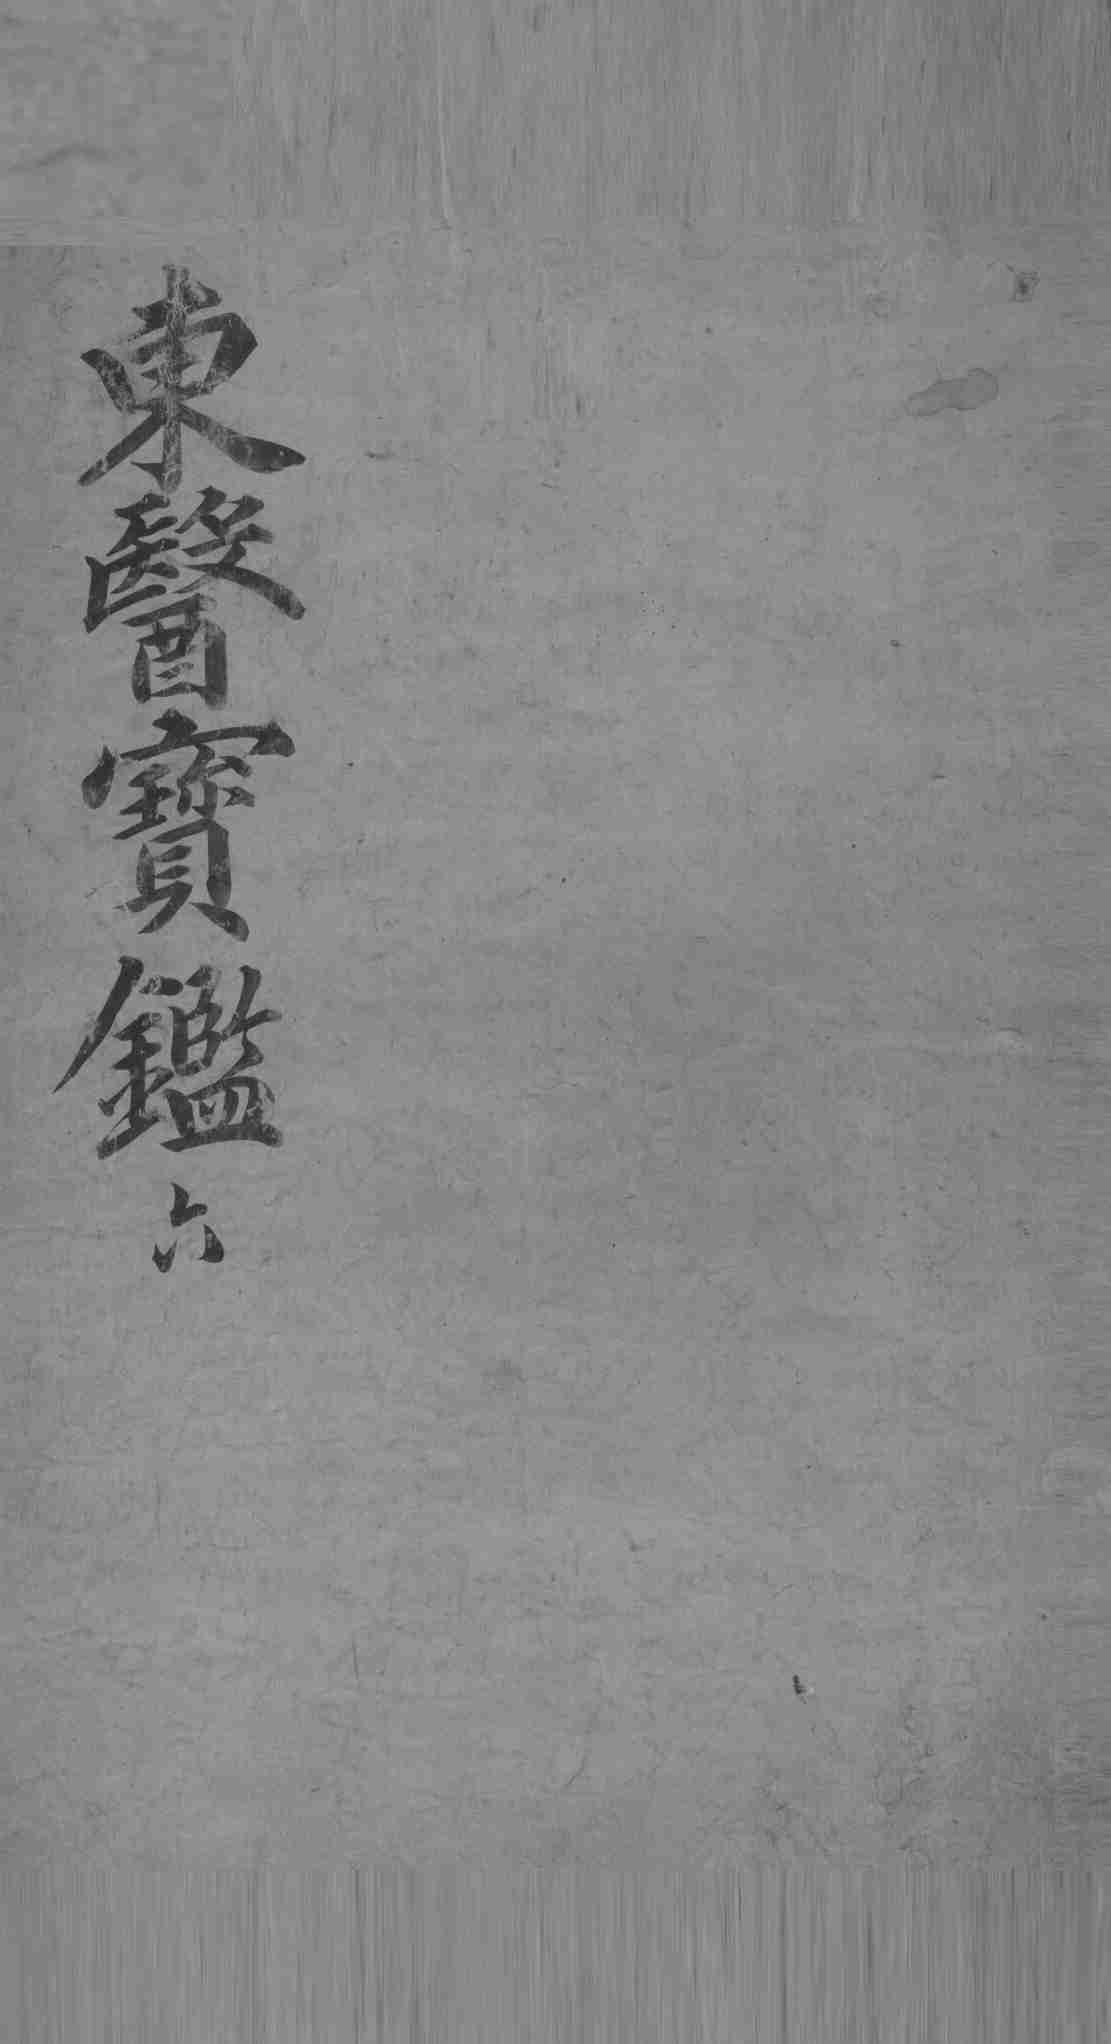 東醫寶鑑 六